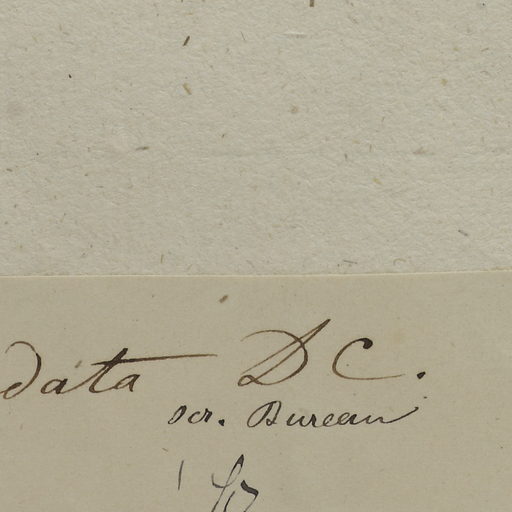 data DC.
scr. Bureau